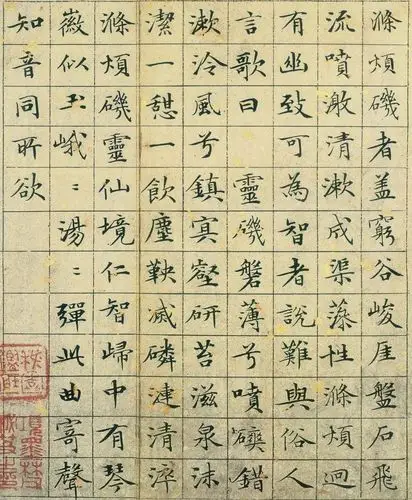 滌煩磯者盖窮谷峻崖盤石飛
流噴激清漱成渠藻性滌煩迥
有幽致可為智者說難與俗人
言歌曰 靈磯磐薄兮噴錯
漱泠風兮鎮冥壑研苔滋泉沫
潔一憇一飲塵鞅減磷漣清淬
滌煩磯靈仙境仁智歸中有琴
徽似玉峨〻湯〻彈此曲寄聲
知音同所欲